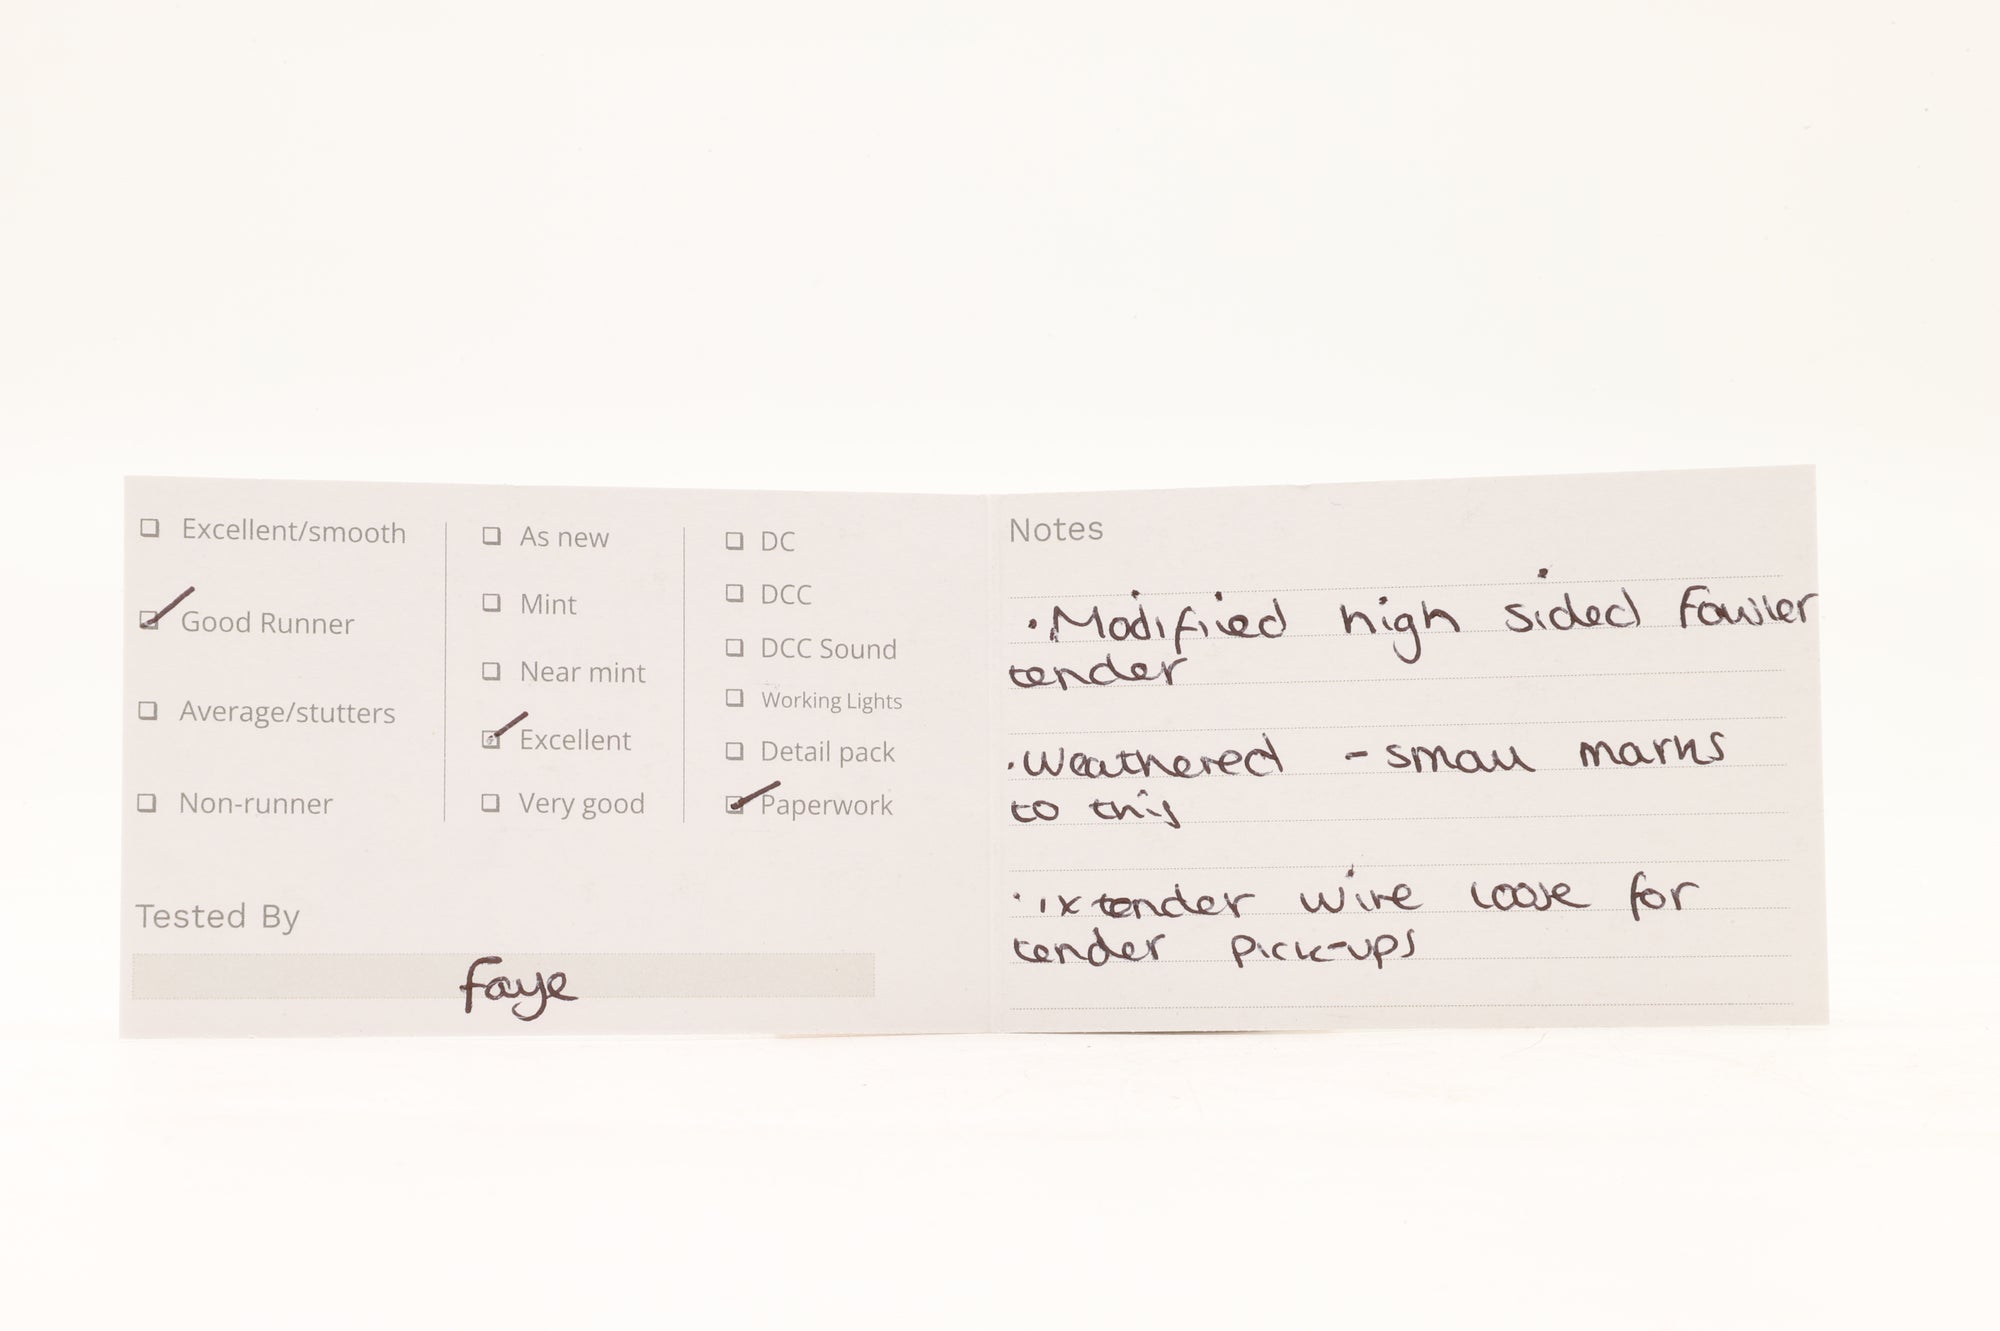 Excellent/smooth
Good Runner
Average/stutters
Non-runner
As new
Mint
Near mint
Excellent
Very good
DC
DCC
DCC Sound
Working Lights
Detail pack
Paperwork
Tested By
Faye
Notes
• Modified high sided Fowler
tender
• Weathered - small marks
to this
• 1x tender wire loose for
tender pick-ups